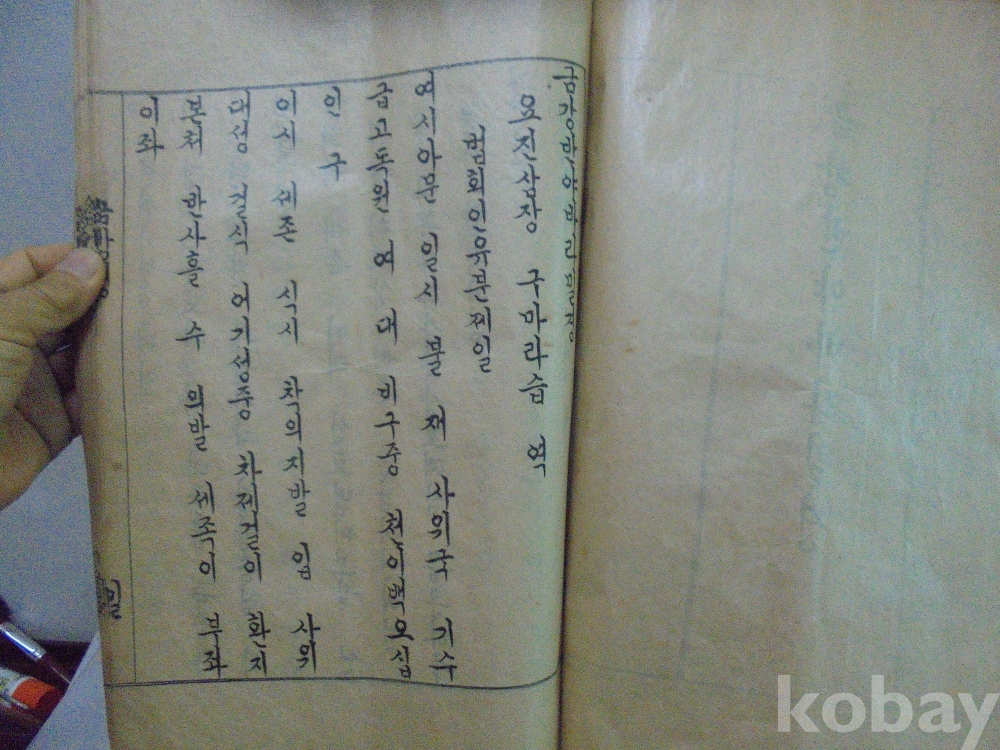 금강반야바라밀경
요진삼장 구마라습 역
법회인유분제일
여시아문 일시 불 재 사위국 기수
급고독원 여 대 비구중 천이백오십
인 구
이시 세존 식시 착의지발 입 사위
대성 걸식 어기성중 차제걸이 환지
본처 반사흘 수 의발 세족이 부좌
이좌
kobay